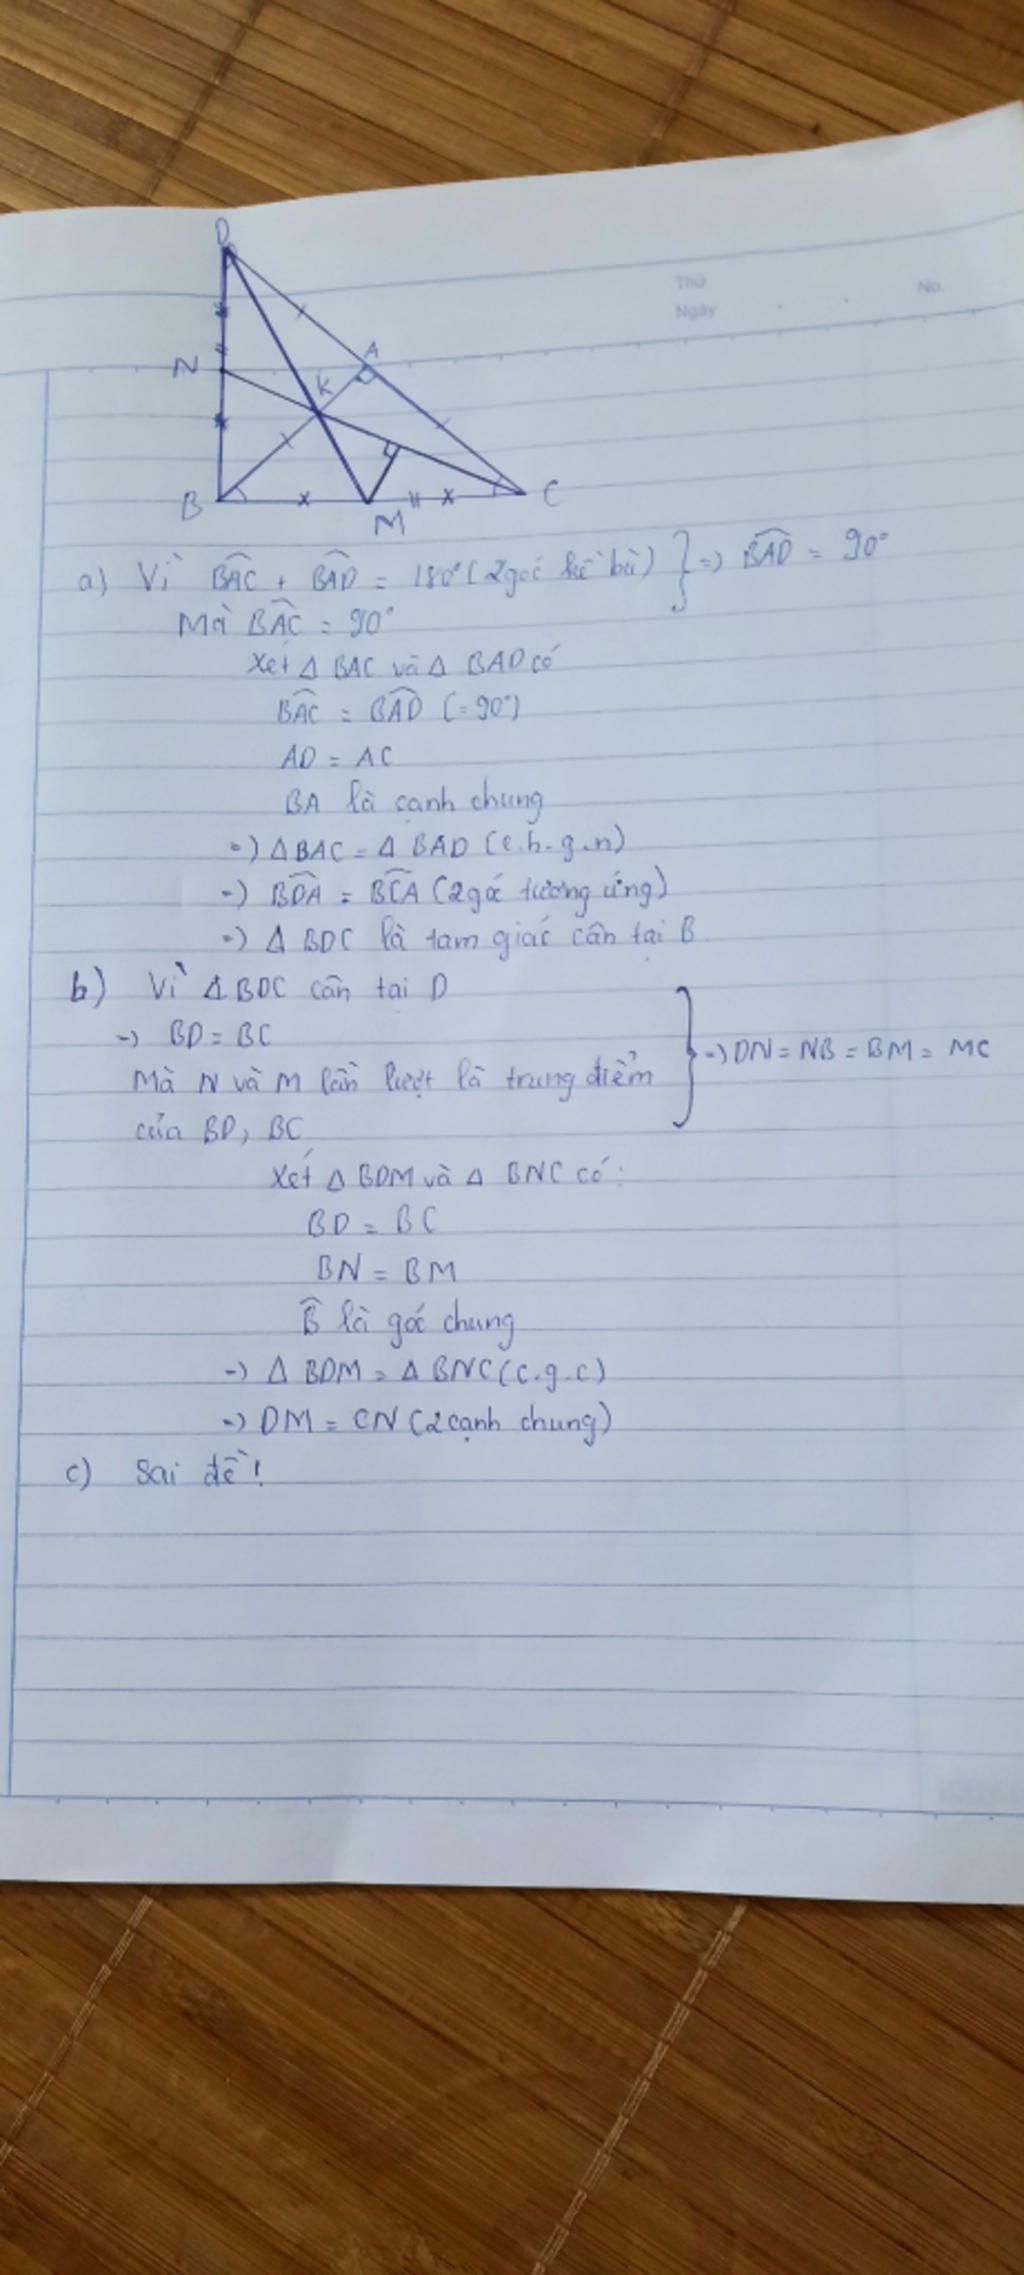 D
Thứ
Ngày
No.
N
A
K
B
M
C
a) Vì BAC + BAD = 180° (2 góc kề bù) } => BAD = 90°
Mà BAC = 90°
Xét Δ BAC và Δ BAD có
BAC = BAD (= 90°)
AD = AC
BA là cạnh chung
=) Δ BAC = Δ BAD (c.h.g.n)
=) BDA = BCA (2 góc tương ứng)
=) Δ BDC là tam giác cân tại B.
b) Vì Δ BDC cân tại D
=) BD = BC
Mà N và M lần lượt là trung điểm } =) DN = NB = BM = MC
của BD, BC
Xét Δ BDM và Δ BNC có:
BD = BC
BN = BM
B là góc chung
=) Δ BDM = Δ BNC (c.g.c)
=) DM = CN (2 cạnh chung)
c) Sai đề!